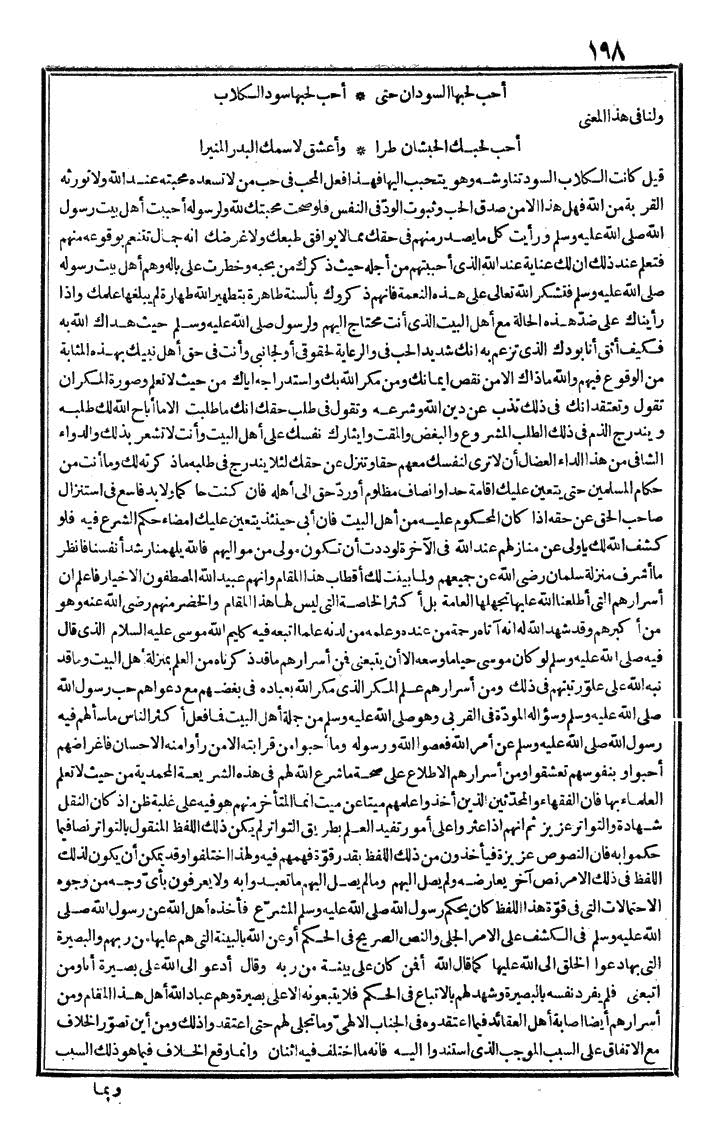 ١٩٨
أحب لحبها السودان حتى * أحب لحبها سود الكلاب
ولنا في هذا المعنى
أحب لحبك الحبشان طرا * وأعشق لاسمك البدر المنيرا
قيل كانت الكلاب السود تناوشه وهو يتحبب اليها فهذا فعل المحب في حب من لا تسعده محبته عند الله ولا تورثه
القربة من الله فهل هذا الا من صدق الحب وثبوت الود في النفس فلو صحت محبتك لله ولرسوله أحببت أهل بيت رسول
الله صلى الله عليه وسلم ورأيت كل ما يصدر منهم في حقك مما لا يوافق طبعك ولا غرضك انه جمال تتنعم بوقوعه منهم
فتعلم عند ذلك ان لك عناية عند الله الذي أحببتهم من أجله حيث ذكرك من يحبه وخطرت على باله وهم أهل بيت رسوله
صلى الله عليه وسلم فتشكر الله تعالى على هذه النعمة فانهم ذكروك بألسنة طاهرة بتطهير الله طهارة لم يبلغها علمك واذا
رأيناك على ضد هذه الحالة مع أهل البيت الذي أنت محتاج اليهم ولرسول صلى الله عليه وسلم حيث هداك الله به
فكيف أثق أنا بودك الذي تزعم به انك شديد الحب في والرعاية لحقوقي أو لجانبي وأنت في حق أهل نبيك بهذه المثابة
من الوقوع فيهم والله ما ذاك الا من نقص ايمانك ومن مكر الله بك واستدراجه اياك من حيث لا تعلم وصورة المكر ان
تقول وتعتقد انك في ذلك تذب عن دين الله وشرعه وتقول في طلب حقك انك ما طلبت الا ما أباح الله لك طلبه
ويندرج الذم في ذلك الطلب المشروع والبغض والمقت وايثارك نفسك على أهل البيت وأنت لا تشعر بذلك والدواء
الشافي من هذا الداء العضال أن لا ترى لنفسك معهم حقا وتنزل عن حقك لئلا يندرج في طلبه ما ذكرته لك وما أنت من
حكام المسلمين حتى يتعين عليك اقامة حد أو انصاف مظلوم أو رد حق الى أهله فان كنت حاكما ولا بد فاسع في استنزال
صاحب الحق عن حقه اذا كان المحكوم عليه من أهل البيت فان أبى حينئذ يتعين عليك امضاء حكم الشرع فيه فلو
كشف الله لك يا ولي عن منازلهم عند الله في الآخرة لوددت أن تكون مولى من مواليهم فالله يلهمنا رشد أنفسنا فانظر
ما أشرف منزلة سلمان رضي الله عن جميعهم ولما بينت لك أقطاب هذا المقام وانهم عبيد الله المصطفون الاخيار فاعلم ان
أسرارهم التي أطلعنا الله عليها تجهلها العامة بل أكثر الخاصة التي ليس لها هذا المقام والخضر منهم رضي الله عنه وهو
من أكبرهم وقد شهد الله له انه آتاه رحمة من عنده وعلمه من لدنه علما اتبعه فيه كليم الله موسى عليه السلام الذي قال
فيه صلى الله عليه وسلم لو كان موسى حيا ما وسعه الا أن يتبعني فمن أسرارهم ما قد ذكرناه من العلم بمنزلة أهل البيت وما قد
نبه الله على علو رتبتهم في ذلك ومن أسرارهم علم المكر الذي مكر الله بعباده في بغضهم مع دعواهم حب رسول الله
صلى الله عليه وسلم وسؤاله المودة في القربى وهو صلى الله عليه وسلم من جملة أهل البيت فما فعل أكثر الناس ما سألهم فيه
رسول الله صلى الله عليه وسلم عن أمر الله فعصوا الله ورسوله وما أحبوا من قرابته الا من رأوا منه الاحسان فاغراضهم
أحبوا وبنفوسهم تعشقوا ومن أسرارهم الاطلاع على صحة ما شرع الله لهم في هذه الشريعة المحمدية من حيث لا تعلم
العلماء بها فان الفقهاء والمحدثين الذين أخذوا علمهم ميتا عن ميت انما المتأخر منهم هو فيه على غلبة ظن اذ كان النقل
شهادة والتواتر عزيز ثم انهم اذا عثروا على أمور تفيد العلم بطريق التواتر لم يكن ذلك اللفظ المنقول بالتواتر نصا فيما
حكموا به فان النصوص عزيزة فيأخذون من ذلك اللفظ بقدر قوة فهمهم فيه ولهذا اختلفوا وقد يمكن أن يكون لذلك
اللفظ في ذلك الامر نص آخر يعارضه ولم يصل اليهم وما لم يصل اليهم ما تعبدوا به ولا يعرفون بأي وجه من وجوه
الاحتمالات التي في قوة هذا اللفظ كان يحكم رسول الله صلى الله عليه وسلم المشرع فأخذه أهل الله عن رسول الله صلى
الله عليه وسلم في الكشف على الامر الجلي والنص الصريح في الحكم أو عن الله بالبينة التي هم عليها من ربهم والبصيرة
التي بها دعوا الخلق الى الله عليها كما قال الله أفمن كان على بينة من ربه وقال أدعو الى الله على بصيرة أنا ومن
اتبعني فلم يفرد نفسه بالبصيرة وشهد لهم بالاتباع في الحكم فلا يتبعونه الا على بصيرة وهم عباد الله أهل هذا المقام ومن
أسرارهم أيضا اصابة أهل العقائد فيما اعتقدوه في الجناب الالهي وما تجلى لهم حتى اعتقدوا ذلك ومن أين تصور الخلاف
مع الاتفاق على السبب الموجب الذي استندوا اليه فانه ما اختلف فيه اثنان وانما وقع الخلاف فيما هو ذلك السبب
وبما